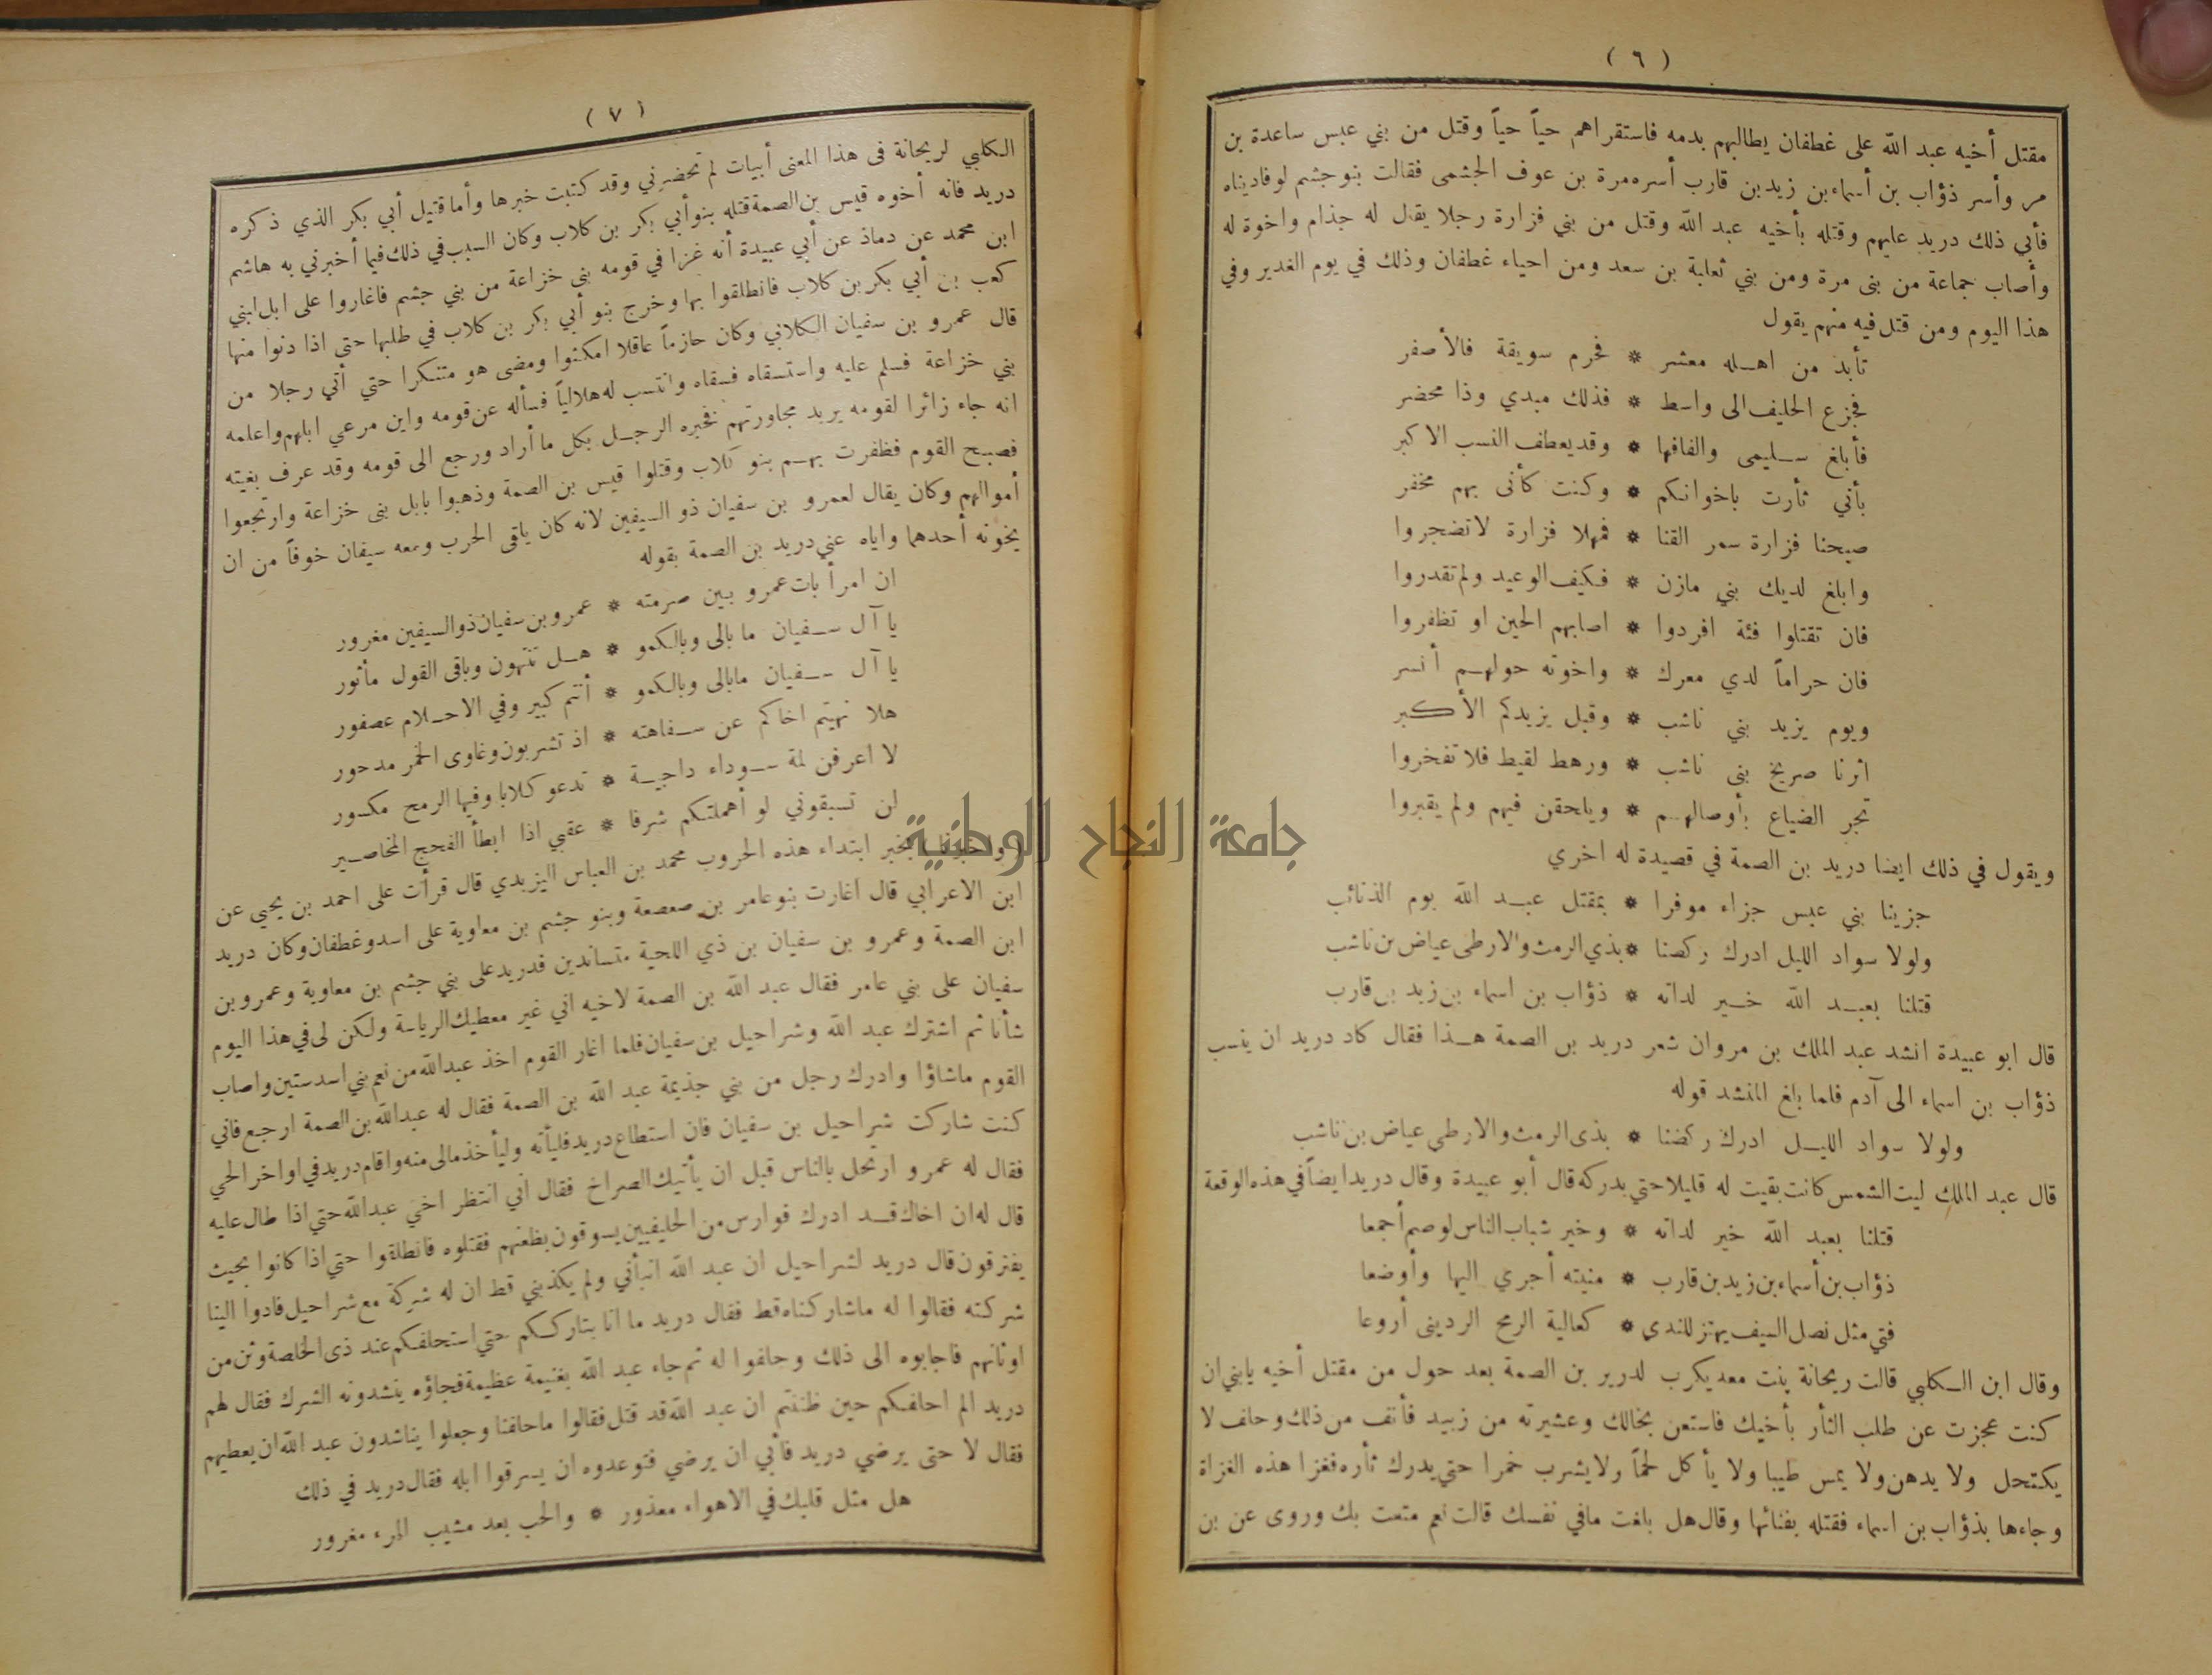 ( ٦ )
مقتل أخيه عبد الله على غطفان يطالبهم بدمه فاستقراهم حياً حياً وقتل من بني عبس ساعدة بن
مر وأسر ذؤاب بن أسماء بن زيد بن قارب أسره مرة بن عوف الجشمى فقالت بنو جشم لو فاديناه
فأبي ذلك دريد عليهم وقتله بأخيه عبد الله وقتل من بني فزارة رجلا يقال له جذام واخوة له
وأصاب جماعة من بنى مرة ومن بني ثعلبة بن سعد ومن احياء غطفان وذلك في يوم الغدير وفي
هذا اليوم ومن قتل فيه منهم يقول
تأبد من اهله معشر * فحرم سويقة فالأصفر
فجزع الحليف الى واسط * فذلك مبدي وذا محضر
فأبلغ سليمى والفافها * وقد يعطف النسب الاكبر
بأني ثأرت باخوانكم * وكنت كأنى بهم مخفر
صبحنا فزارة سمر القنا * فمهلا فزارة لا تضجروا
وابلغ لديك بني مازن * فكيف الوعيد ولم تقدروا
فان تقتلوا فئة افردوا * اصابهم الحين او تظفروا
فان حراماً لدي معرك * واخوته حولهم أنسر
ويوم يزيد بني ناشب * وقبل يزيدكم الأكبر
اثرنا صريخ بنى ناشب * ورهط لقيط فلا تفخروا
تجر الضباع بأوصالهم * ويلحقن فيهم ولم يقبروا
ويقول في ذلك ايضا دريد بن الصمة في قصيدة له اخري
جزينا بني عبس جزاء موفرا * بمقتل عبد الله يوم الذنائب
ولولا سواد الليل ادرك ركضنا * بذي الرمث والارطى عياض بن ناشب
قتلنا بعبد الله خير لداته * ذؤاب بن اسماء بن زيد بن قارب
قال ابو عبيدة انشد عبد الملك بن مروان شعر دريد بن الصمة هذا فقال كاد دريد ان ينسب
ذؤاب بن اسماء الى آدم فلما بلغ المنشد قوله
ولولا سواد الليل ادرك ركضنا * بذى الرمث والارطي عياض بن ناشب
قال عبد الملك ليت الشمس كانت بقيت له قليلا حتي يدركه قال أبو عبيدة وقال دريد ايضاً في هذه الوقعة
قتلنا بعبد الله خير لداته * وخير شباب الناس لو ضم أجمعا
ذؤاب بن أسماء بن زيد بن قارب * منيته أجري اليها وأوضعا
فتي مثل نصل السيف يهتز للندي * كعالية الرمح الردينى أروعا
وقال ابن الكلبي قالت ريحانة بنت معديكرب لدريد بن الصمة بعد حول من مقتل أخيه يابني ان
كنت عجزت عن طلب الثأر بأخيك فاستعن بخالك وعشيرته من زبيد فأنف من ذلك وحلف لا
يكتحل ولا يدهن ولا يمس طيبا ولا يأكل لحماً ولا يشرب خمرا حتي يدرك ثأره فغزا هذه الغزاة
وجاءها بذؤاب بن اسماء فقتله بفنائها وقال هل بلغت مافي نفسك قالت نعم متعت بك وروى عن بن
( ٧ )
الكلبي لريحانة فى هذا المعنى أبيات لم تحضرني وقد كتبت خبرها وأما قتيل أبي بكر الذي ذكره
دريد فانه أخوه قيس بن الصمة قتله بنو أبي بكر بن كلاب وكان السبب في ذلك فيما أخبرني به هاشم
ابن محمد عن دماذ عن أبي عبيدة أنه غزا في قومه بنى خزاعة من بني جشم فاغاروا على ابل لبني
كعب بن أبي بكر بن كلاب فانطلقوا بها وخرج بنو أبي بكر بن كلاب في طلبها حتى اذا دنوا منها
قال عمرو بن سفيان الكلابي وكان حازماً عاقلا امكثوا ومضى هو متنكرا حتي أتي رجلا من
بني خزاعة فسلم عليه واستسقاه فسقاه وانتسب له هلالياً فسأله عن قومه واين مرعي ابلهم واعلمه
انه جاء زائرا لقومه يريد مجاورتهم فخبره الرجل بكل ما أراد ورجع الى قومه وقد عرف بغيته
فصبح القوم فظفرت بهم بنو كلاب وقتلوا قيس بن الصمة وذهبوا بابل بنى خزاعة وارتجعوا
أموالهم وكان يقال لعمرو بن سفيان ذو السيفين لانه كان يلقى الحرب ومعه سيفان خوفاً من ان
يخونه أحدهما واياه عني دريد بن الصمة بقوله
ان امرأ بات عمرو بين صرمته * عمرو بن سفيان ذو السيفين مغرور
يا آل سفيان ما بالى وبالكمو * هل تنتهون وباقى القول مأثور
يا آل سفيان مابالى وبالكمو * أنتم كبير وفي الاحلام عصفور
هلا نهيتم اخاكم عن سفاهته * اذ تشربون وغاوى الخمر مدحور
لا اعرفن لمة سوداء داجية * تدعو كلابا وفيها الرمح مكسور
لن تسبقوني لو أمهلتكم شرفا * عقبي اذا ابطأ الفحج المخاصير
واخبرنا بخبر ابتداء هذه الحروب محمد بن العباس اليزيدي قال قرأت على احمد بن يحيي عن
ابن الاعرابي قال اغارت بنو عامر بن صعصعة وبنو جشم بن معاوية على اسد وغطفان وكان دريد
ابن الصمة وعمرو بن سفيان بن ذي اللحية متساندين فدريد على بني جشم بن معاوية وعمرو بن
سفيان على بني عامر فقال عبد الله بن الصمة لاخيه اني غير معطيك الرياسة ولكن لى في هذا اليوم
شأنا ثم اشترك عبد الله وشراحيل بن سفيان فلما اغار القوم اخذ عبد الله من نعم بني اسد ستين واصاب
القوم ماشاؤا وادرك رجل من بني جذيمة عبد الله بن الصمة فقال له عبد الله بن الصمة ارجع فاني
كنت شاركت شراحيل بن سفيان فان استطاع دريد فليأته وليأخذ مالى منه واقام دريد في اواخر الحي
فقال له عمرو ارتحل بالناس قبل ان يأتيك الصراخ فقال أني انتظر اخي عبد الله حتي اذا طال عليه
قال له ان اخاك قد ادرك فوارس من الحليفيين يسوقون بظعنهم فقتلوه فانطلقوا حتي اذا كانوا بحيث
يفترقون قال دريد لشراحيل ان عبد الله انبأني ولم يكذبني قط ان له شركة مع شراحيل فادوا الينا
شركته فقالوا له ماشاركناه قط فقال دريد ما أنا بتارككم حتي استحلفكم عند ذى الخلصة وثن من
اوثانهم فاجابوه الى ذلك وحلفوا له ثم جاء عبد الله بغنيمة عظيمة فجاؤه ينشدونه الشرك فقال لهم
دريد الم احلفكم حين ظننتم ان عبد الله قد قتل فقالوا ماحلفنا وجعلوا يناشدون عبد الله ان يعطيهم
فقال لا حتى يرضي دريد فأبي ان يرضي فتوعدوه ان يسرقوا ابله فقال دريد في ذلك
هل مثل قلبك في الاهواء معذور * والحب بعد مشيب المرء مغرور
جامعة النجاح الوطنية